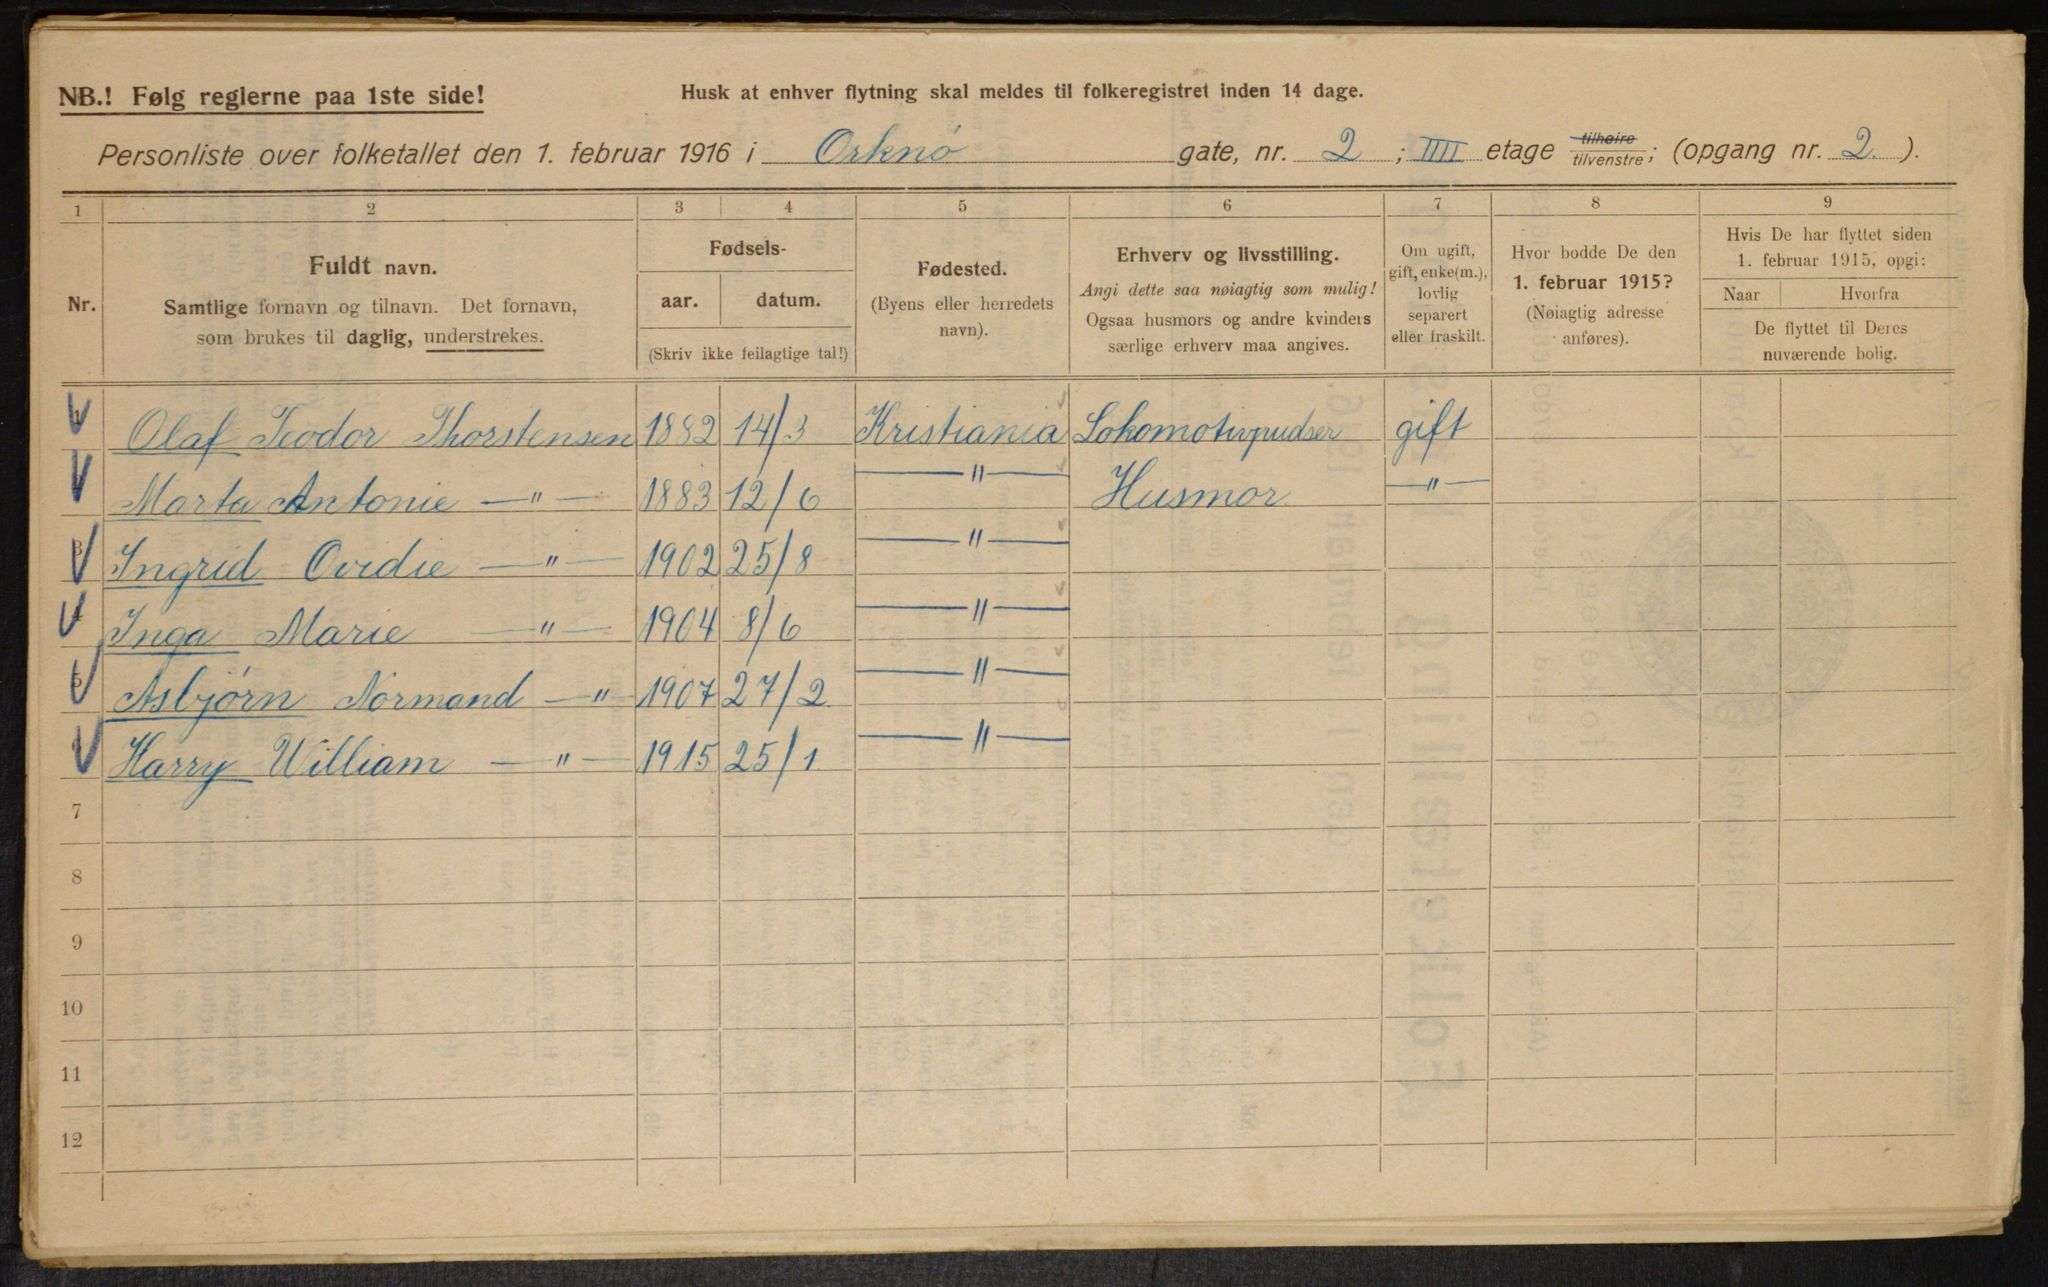 NB.! Følg reglerne paa 1ste side!
Husk at enhver flytning skal meldes til folkeregistret inden 14 dage.
Personliste over folketallet den 1. februar 1916 i Orknø gate, nr. 2 ; IIII etage tilhøire tilvenstre; (opgang nr. 2. ).
1 2 3 4 5 6 7 8 9
Nr.
Fuldt navn.
Samtlige fornavn og tilnavn. Det fornavn,
som brukes til daglig, understrekes.
Fødsels-
aar. datum.
(Skriv ikke feilagtige tal!)
Fødested.
(Byens eller herredets
navn).
Erhverv og livsstilling.
Angi dette saa nøiagtig som mulig!
Ogsaa husmors og andre kvinders
særlige erhverv maa angives.
Om ugift,
gift, enke(m.),
lovlig
separert
eller fraskilt.
Hvor bodde De den
1. februar 1915?
(Nøiagtig adresse
anføres).
Hvis De har flyttet siden
1. februar 1915, opgi:
Naar Hvorfra
De flyttet til Deres
nuværende bolig.
Olaf Teodor Thorstensen 1882 14/3 Kristiania Lokomotivpudser gift
Marta Antonie —"— 1883 12/6 —"— Husmor —"—
3 Ingrid Ovidie —"— 1902 25/8 —"—
4 Inga Marie —"— 1904 8/6 —"—
5 Asbjørn Normand —"— 1907 27/2 —"—
Harry William —"— 1915 25/1 —"—
7
8
9
10
11
12